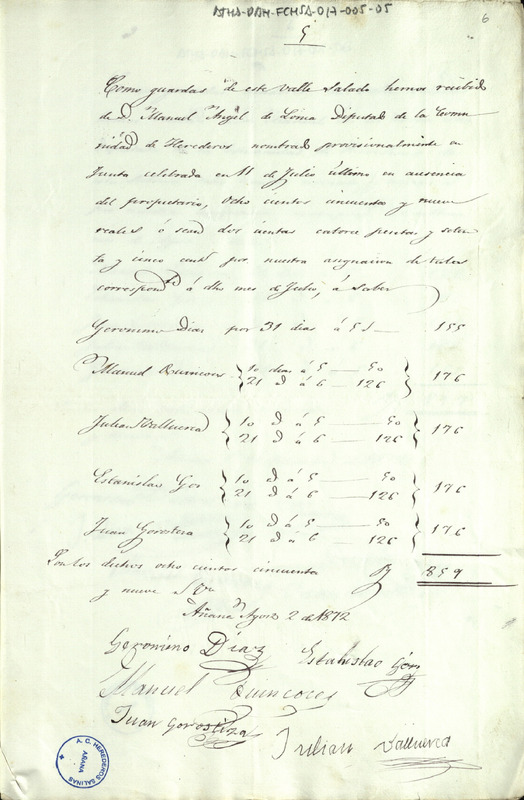 ATHA-DAH-FCHSA-017-005-05
6
5
Como guardas de este valle Salado hemos recibido
de D. Manuel Angel de Loma Diputado de la Comu
nidad de Herederos nombrado provisionalmente en
Junta celebrada en 11 de Julio último en ausencia
del propietario, ocho cientos cincuenta y nueve
reales ó sean dos cientas catorce pesetas y seten
ta y cinco cents por nuestra asignacion de tales
correspondte á dho mes de Julio, á saber
Geronimo Diaz por 31 dias á 5 155
Manuel Quincoces 10 dias á 5 50
21 id á 6 126 176
Julian Valluerca 10 id á 5 50
21 id á 6 126 176
Estanislao Gor 10 id á 5 50
21 id á 6 126 176
Juan Gorostiza 10 id á 5 50
21 id á 6 126 176
Son los dichos ocho cientos cincuenta 859
y nueve
Añana Agosto 2 de 1872
Geronimo Diaz Estanislao Gor
Manuel Quincoces
Juan Gorostiza
Julian Valluerca
A. C. HEREDEROS SALINAS
AÑANA